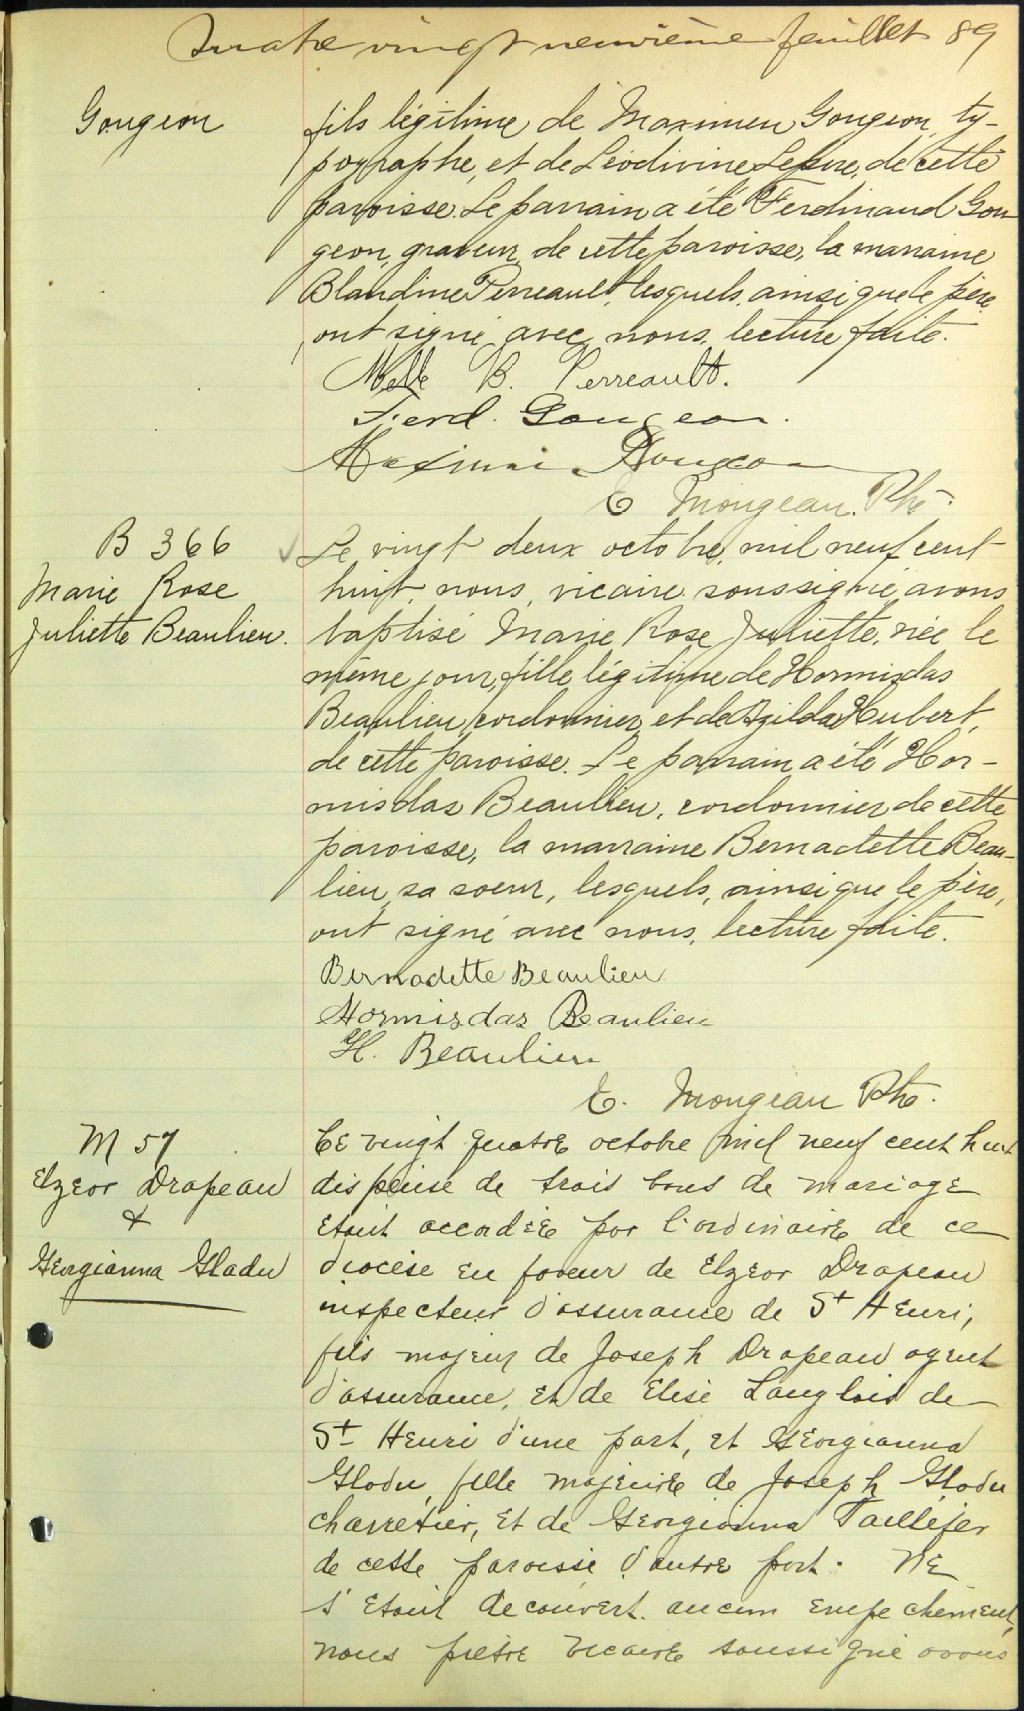 Quatre vingt neuvième feuillet 89
Gougeon
fils légitime de Maximien Gougeon, ty-
pographe, et de Léodivine Lepire, de cette
paroisse. Le parrain a été Ferdinand Gou
geon, graveur, de cette paroisse, la marraine
Blandine Perreault, lesquels, ainsi que le père
ont signé avec nous, lecture faite.
Melle B. Perreault.
Ferd. Gougeon.
Gougeon
E Mongeau. Ptre
B 366
Marie Rose
Juliette Beaulieu.
Le vingt deux octobre, mil neuf cent
huit, nous, vicaire soussigné, avons
baptisé Marie Rose Juliette, née le
même jour, fille légitime de Hormisdas
Beaulieu, cordonnier, et de Azilda Hubert,
de cette paroisse. Le parrain a été Hor-
misdas Beaulieu, cordonnier de cette
paroisse, la marraine Bernadette Beau-
lieu, sa soeur, lesquels, ainsi que le père,
ont signé avec nous, lecture faite.
Bernadette Beaulieu
Hormisdas Beaulieu
H. Beaulieu
E. Mongeau Ptre.
M 57
Elzear Drapeau
&
Georgianna Gladu
Ce vingt quatre octobre mil neuf cent huit
dispense de trois bans de mariage
étant accordée par l'ordinaire de ce
diocèse en faveur de Elzear Drapeau
inspecteur d'assurance de St Henri,
fils majeur de Joseph Drapeau agent
d'assurance, et de Elise Langlois de
St Henri d'une part, et Georgianna
Gladu, fille majeure de Joseph Gladu
charretier, et de Georgianna Taillefer
de cette paroisse d'autre part. Ne
s'étant découvert aucun empêchement,
nous prêtre vicaire soussigné avons